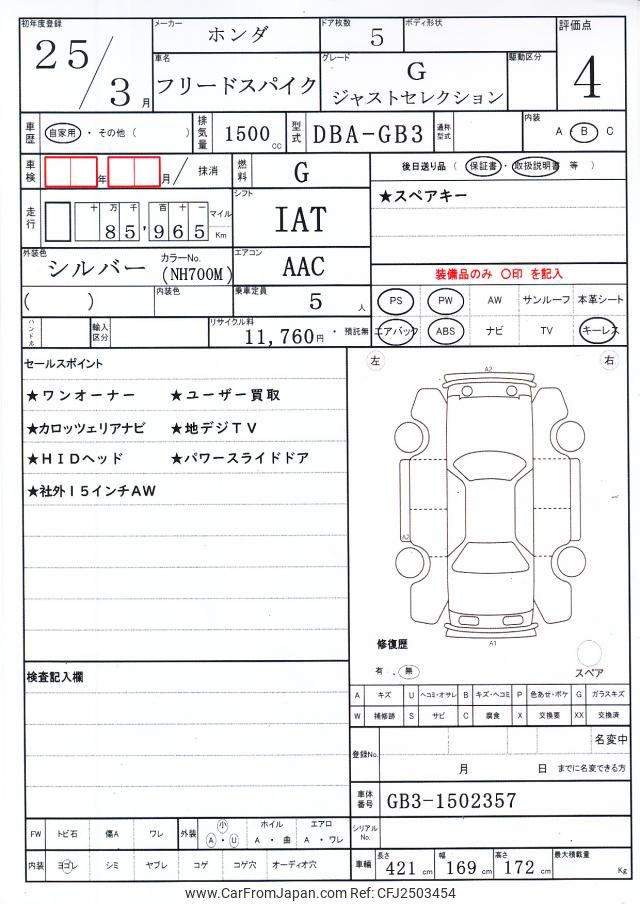 初年度登録 メーカー ホンダ ドア枚数 5 ボディ形状 評価点
25/3月 車名 フリードスパイク グレード G ジャストセレクション 駆動区分 4
車歴 自家用・その他( ) 排気量 1500cc 型式 DBA-GB3 通称型式 内装 A・B・C
車検 年 月/ 抹消 燃料 G 後日送り品(保証書・取扱説明書 等)
走行 十万千百十一 85,965 マイル Km シフト IAT ★スペアキー
外装色 シルバー カラーNo. (NH700M) エアコン AAC 装備品のみ 〇印 を記入
( ) 内装色 乗車定員 5人 PS PW AW サンルーフ 本革シート
ハンドル 輸入区分 リサイクル料 11,760円・預託無 エアバック ABS ナビ TV キーレス
セールスポイント 左 右
★ワンオーナー ★ユーザー買取
★カロッツェリアナビ ★地デジTV
★HIDヘッド ★パワースライドドア
★社外15インチAW
A2
A2
A1
修復歴
有・無 スペア
検査記入欄
A キズ U ヘコミ・オサレ B キズ・ヘコミ P 色あせ・ボケ G ガラスキズ
W 補修跡 S サビ C 腐食 X 交換要 XX 交換済
登録No. 名変中
月 日 までに名変できる方
車体番号 GB3-1502357
シリアルNo.
FW トビ石 傷A ワレ 外装 小 A・U ホイル A・曲 エアロ A・ワレ
内装 ヨゴレ シミ ヤブレ コゲ コゲ穴 オーディオ穴
車輪 長さ 421cm 幅 169cm 高さ 172cm 最大積載量 Kg
www.CarFromJapan.com Ref: CFJ2503454